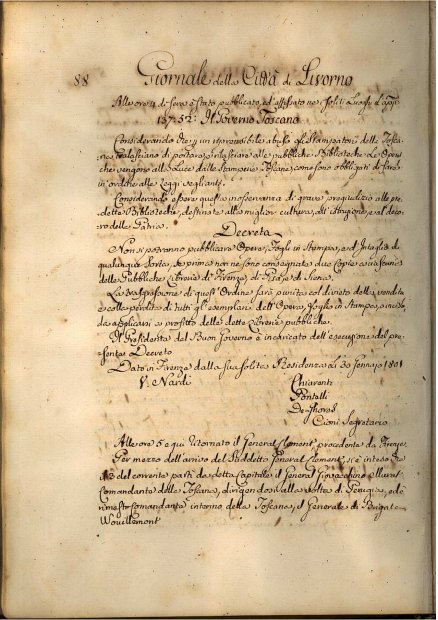 88 Giornale della Città di Livorno
Alle ore 4 di sera è stato pubblicato, ed affissato ne i soliti Luoghi l'app.
13752. Il Governo Toscano
Considerando che un irriprensibile abuso gli Stampatori delle Tosca-
ne tralasciano di portare, e rilasciare alle pubbliche Biblioteche le Opere
che vengono alla Luce dalle Stamperie Toscane, come sono obbligati di fare
in ordine alle Leggi veglianti.
Considerando essere questa inosservanza di grave pregiudizio alle pre-
dette Biblioteche, destinate alla miglior cultura, ed istruzione, e al deco-
ro della Patria.
Decreta
Non si potranno pubblicare Opere, Fogli in Stampa, ed Intagli di
qualunque sorta, se prima non ne sono consegnate due Copie a ciascuna
delle Pubbliche Librerie di Firenze, di Pisa, e di Siena.
La trasgressione di quest'Ordine sarà punita col divieto della vendita
e colla perdita di tutti gl'esemplari dell'Opera, Foglio in Stampa,
da applicarsi a profitto delle dette Librerie pubbliche.
Il Presidente del Buon Governo è incaricato dell'esecuzione del pre-
sente Decreto
Dato in Firenze dalla sua solita Residenza li 30 Gennajo 1801
V. Nardi Chiarenti
Pontelli
De-Ghores
Cioni Segretario
Alle ore 5 e qui ritornato il General Clement procedente da Firenze.
Per mezzo dell'arrivo del suddetto General Clement, si è inteso che
del corrente partì da detta Capitale il General Giovacchino Murat
Comandante della Toscana, dirigendosi alla volta di Perugia, ed è
rimasto Comandante interino della Toscana, il Generale di Brigata
Wouillemont